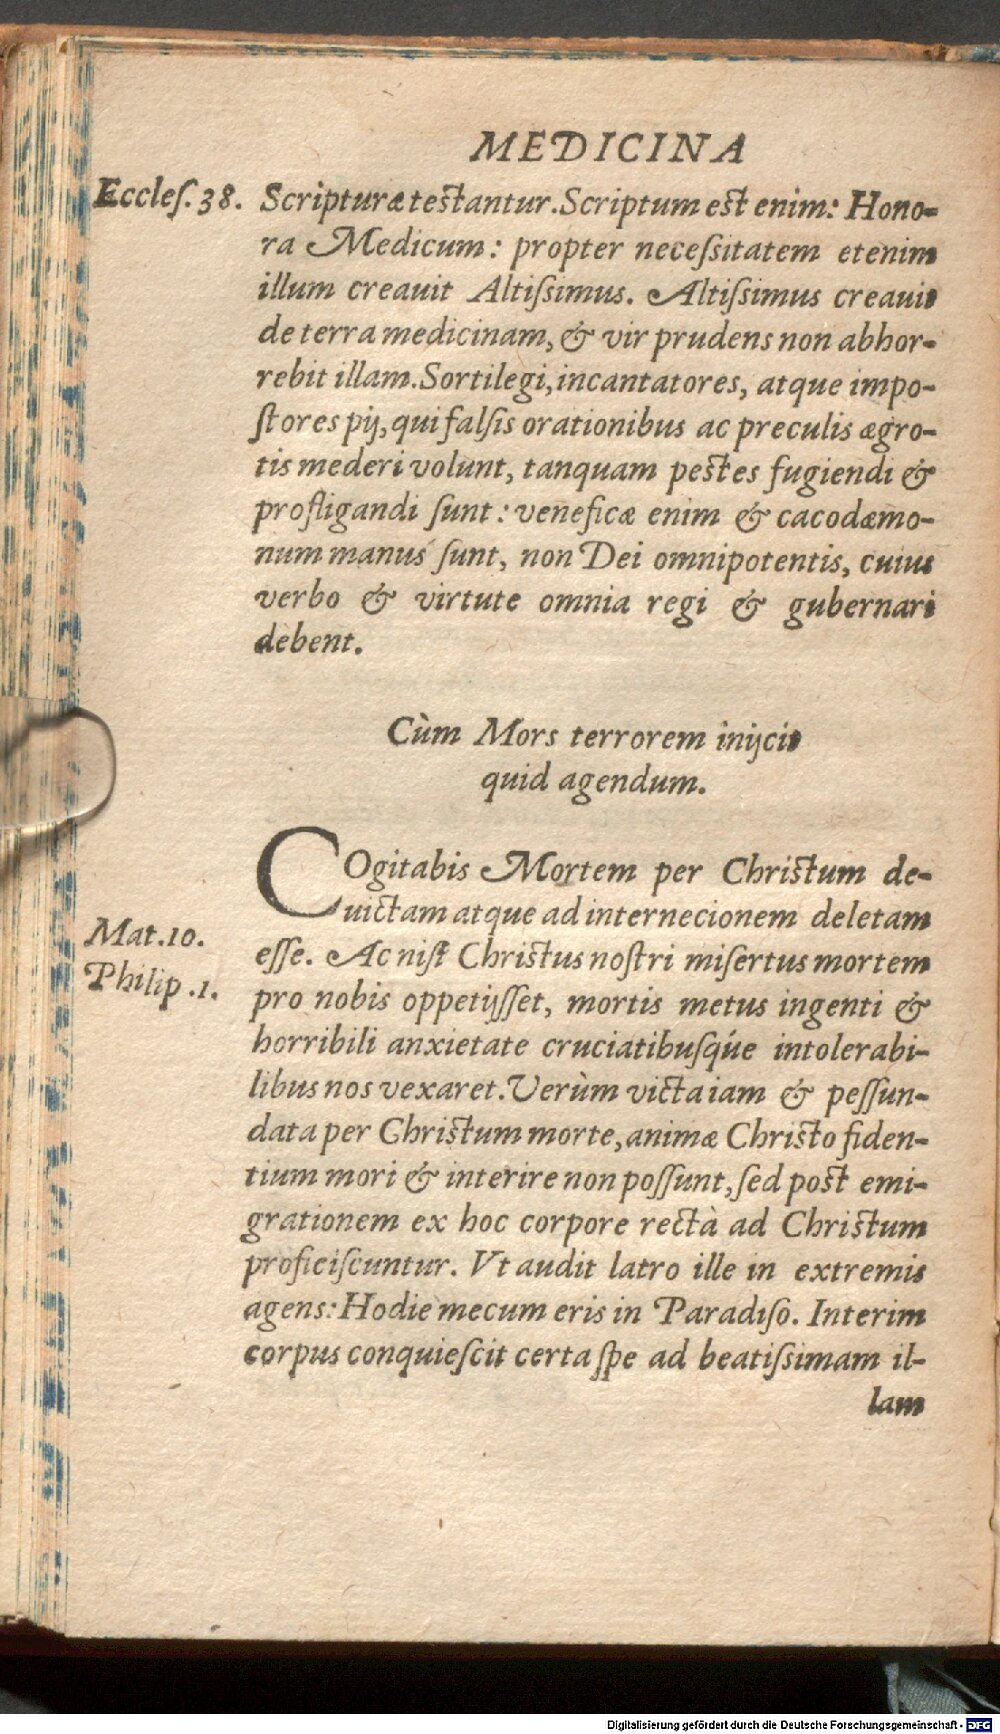 MEDICINA
Eccleſ. 38.
Scripturæ testantur. Scriptum est enim: Hono-
ra Medicum: propter neceſsitatem etenim
illum creauit Altiſsimus. Altiſsimus creauit
de terra medicinam, & vir prudens non abhor-
rebit illam. Sortilegi, incantatores, atque impo-
ſtores pij, qui falſis orationibus ac preculis ægro-
tis mederi volunt, tanquam pestes fugiendi &
profligandi ſunt: veneficæ enim & cacodæmo-
num manus ſunt, non Dei omnipotentis, cuius
verbo & virtute omnia regi & gubernari
debent.
Cùm Mors terrorem inijcit
quid agendum.
COgitabis Mortem per Christum de-
uictam atque ad internecionem deletam
Mat. 10.
eſſe. Ac niſi Christus noſtri miſertus mortem
Philip. 1.
pro nobis oppetijſſet, mortis metus ingenti &
horribili anxietate cruciatibuſq́ue intolerabi-
libus nos vexaret. Verùm victa iam & peſſun-
data per Christum morte, animæ Christo fiden-
tium mori & interire non poſſunt, ſed post emi-
grationem ex hoc corpore rectà ad Christum
proficiſcuntur. Vt audit latro ille in extremis
agens: Hodie mecum eris in Paradiſo. Interim
corpus conquieſcit certa ſpe ad beatiſsimam il-
lam
Digitalisierung gefördert durch die Deutsche Forschungsgemeinschaft - DFG